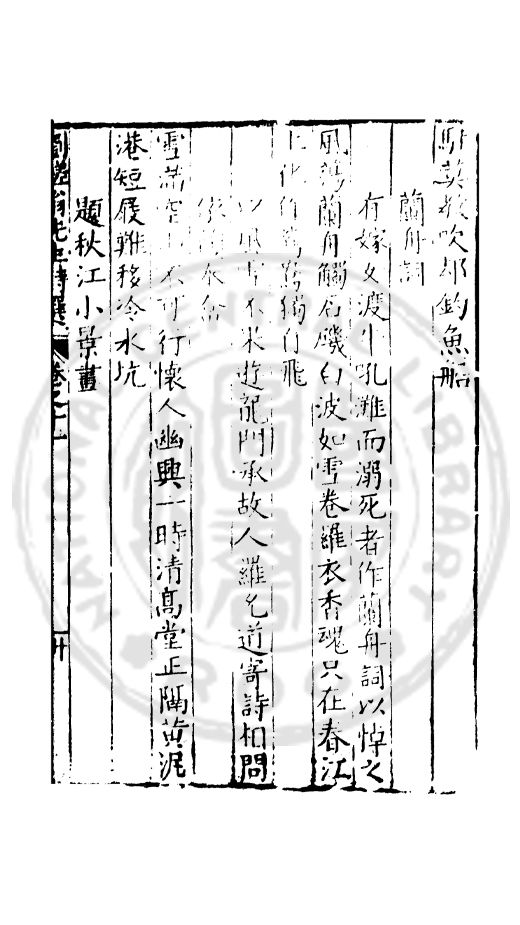 莫教吹却釣魚船
蘭舟詞
有嫁女渡牛吼灘而溺死者作蘭舟詞以悼之
風蕩蘭舟觸石磯白波如雪卷羅衣香魂只在春江
上化作鴛鴦獨自飛
以風雪不果遊龍門承故人羅允道寄詩相問
依韻奉答
雪滿空山不可行懷人幽興一時清高堂正隔黃泥
港短屐難移冷水坑
題秋江小景畫
先生詩選 卷之二 十
NATIONAL CENTRAL LIBRARY